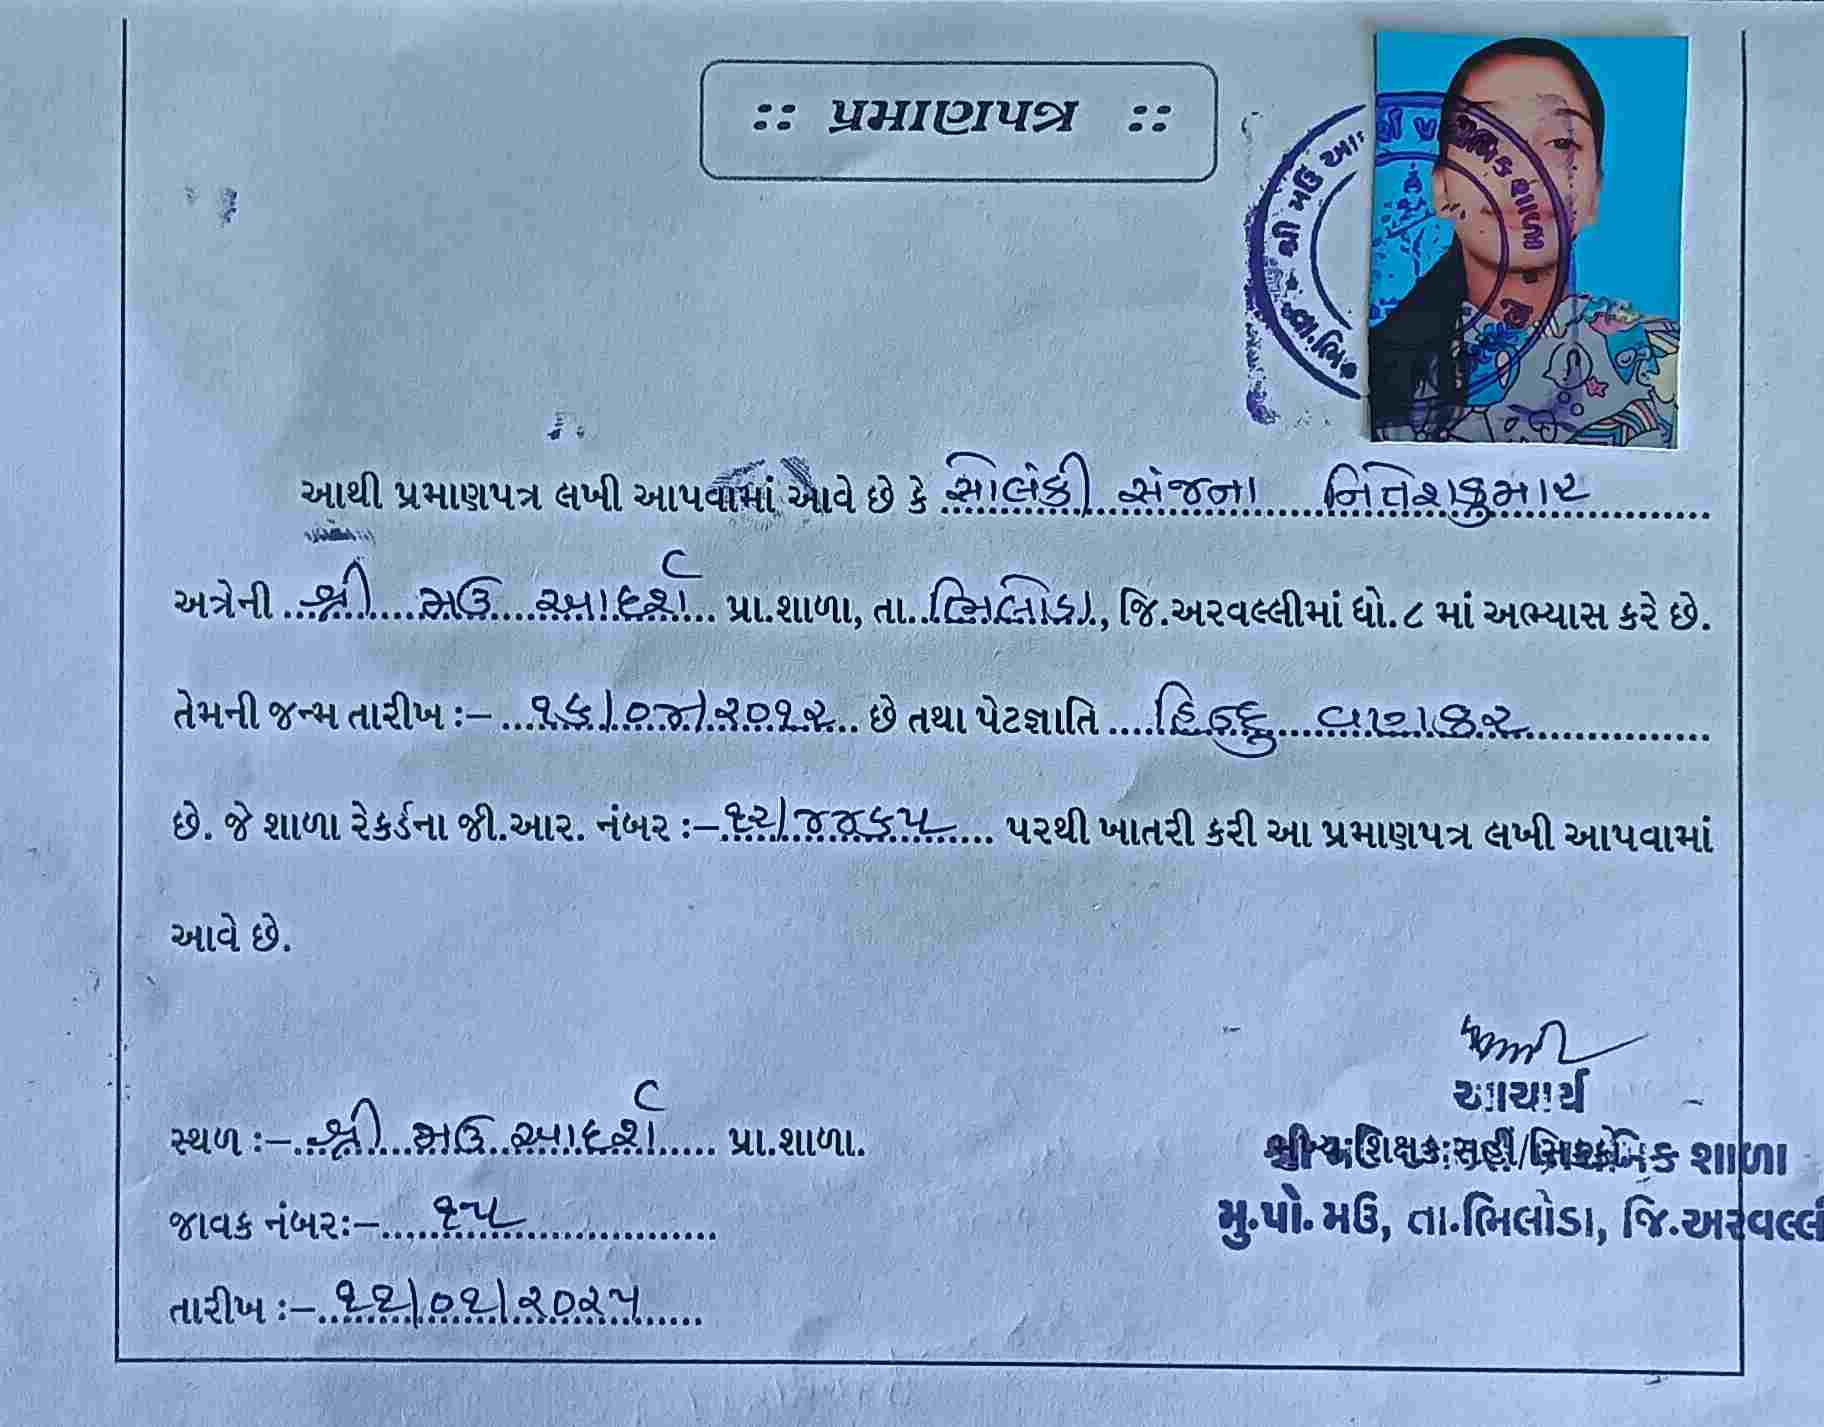 :: પ્રમાણપત્ર ::
શ્રી મઉ આદર્શ પ્રાથમિક શાળા
આથી પ્રમાણપત્ર લખી આપવામાં આવે છે કે સોલંકી સંજના નિતેશકુમાર
અત્રેની શ્રી મઉ આદર્શ પ્રા.શાળા, તા. ભિલોડા, જિ.અરવલ્લીમાં ધો.૮ માં અભ્યાસ કરે છે.
તેમની જન્મ તારીખ :– ૧૬/૦૪/૨૦૧૨ છે તથા પેટજ્ઞાતિ હિન્દુ વણકર
છે. જે શાળા રેકર્ડના જી.આર. નંબર :– ૧૨/૪૪૬૫ પરથી ખાતરી કરી આ પ્રમાણપત્ર લખી આપવામાં
આવે છે.
આચાર્ય
સ્થળ :– શ્રી મઉ આદર્શ પ્રા.શાળા.
શિક્ષક સહી/સિક્કો શાળા
જાવક નંબર:– ૧૫
મુ.પો. મઉ, તા.ભિલોડા, જિ.અરવલ્લી
તારીખ :– ૨૨/૦૨/૨૦૨૫